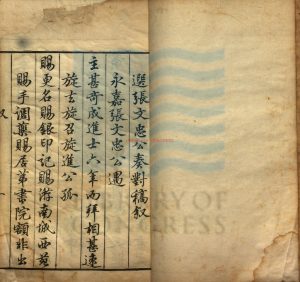 選張文忠公奏對稿叙
永嘉張文忠公遇
主甚奇成進士六年而拜相甚速
旋去旋召旋進公孤
賜更名賜銀印記賜游南城西苑
賜手調藥賜居第書院額非出
叙
LIBRARY OF
CONGRESS